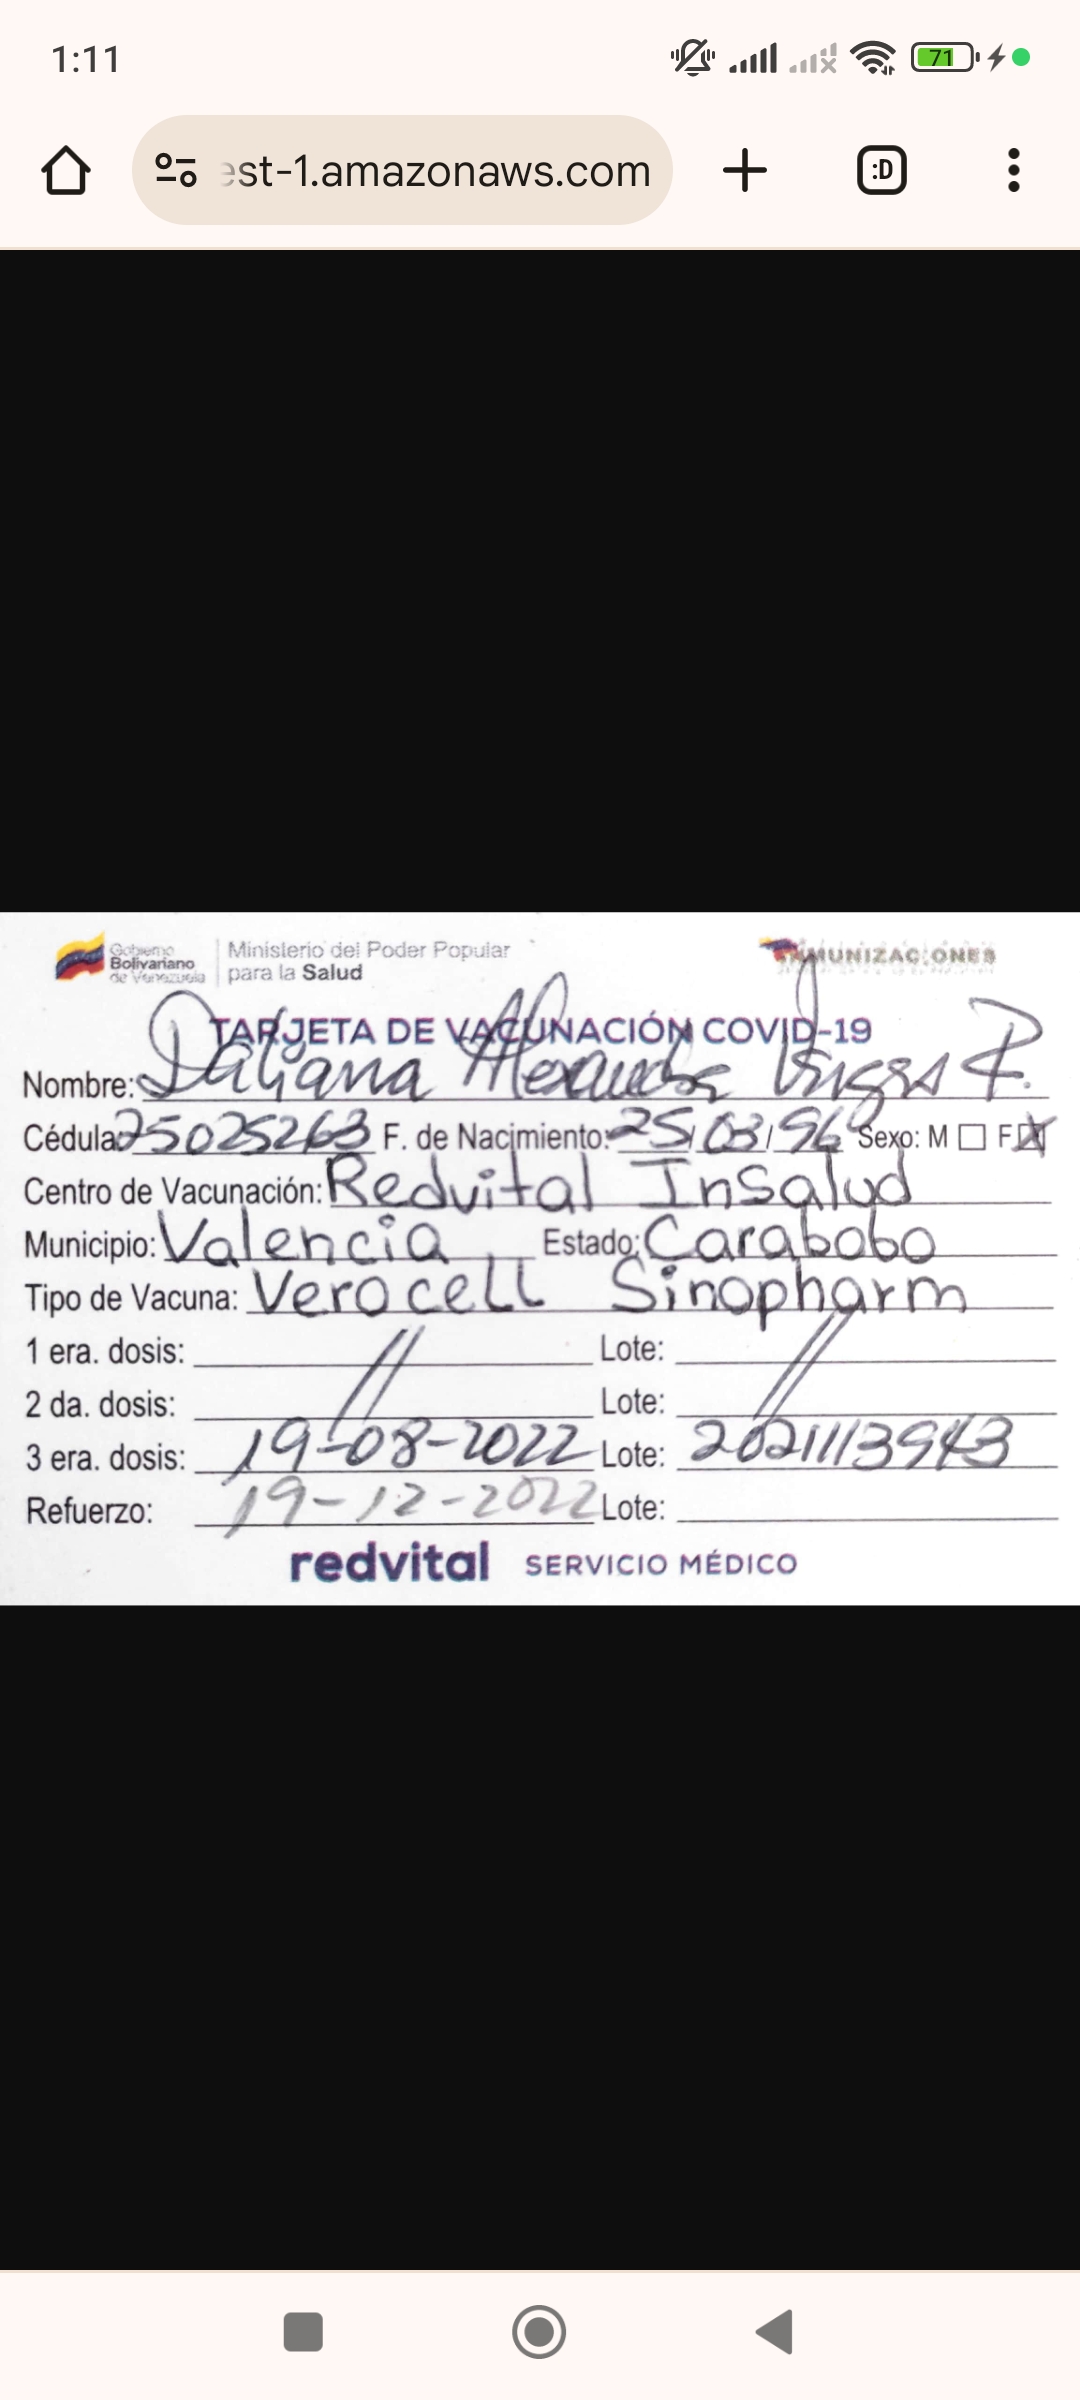 1:11
71
est-1.amazonaws.com
:D
Gobierno Bolivariano de Venezuela
Ministerio del Poder Popular para la Salud
INMUNIZACIONES
TARJETA DE VACUNACIÓN COVID-19
Nombre: Daliana Alexandra Vargas P.
Cédula: 25025263 F. de Nacimiento: 25/03/96 Sexo: M F X
Centro de Vacunación: Redvital InSalud
Municipio: Valencia Estado: Carabobo
Tipo de Vacuna: Verocell Sinopharm
1 era. dosis: // Lote: //
2 da. dosis: Lote:
3 era. dosis: 19-08-2022 Lote: 2021113943
Refuerzo: 19-12-2022 Lote:
redvital SERVICIO MÉDICO